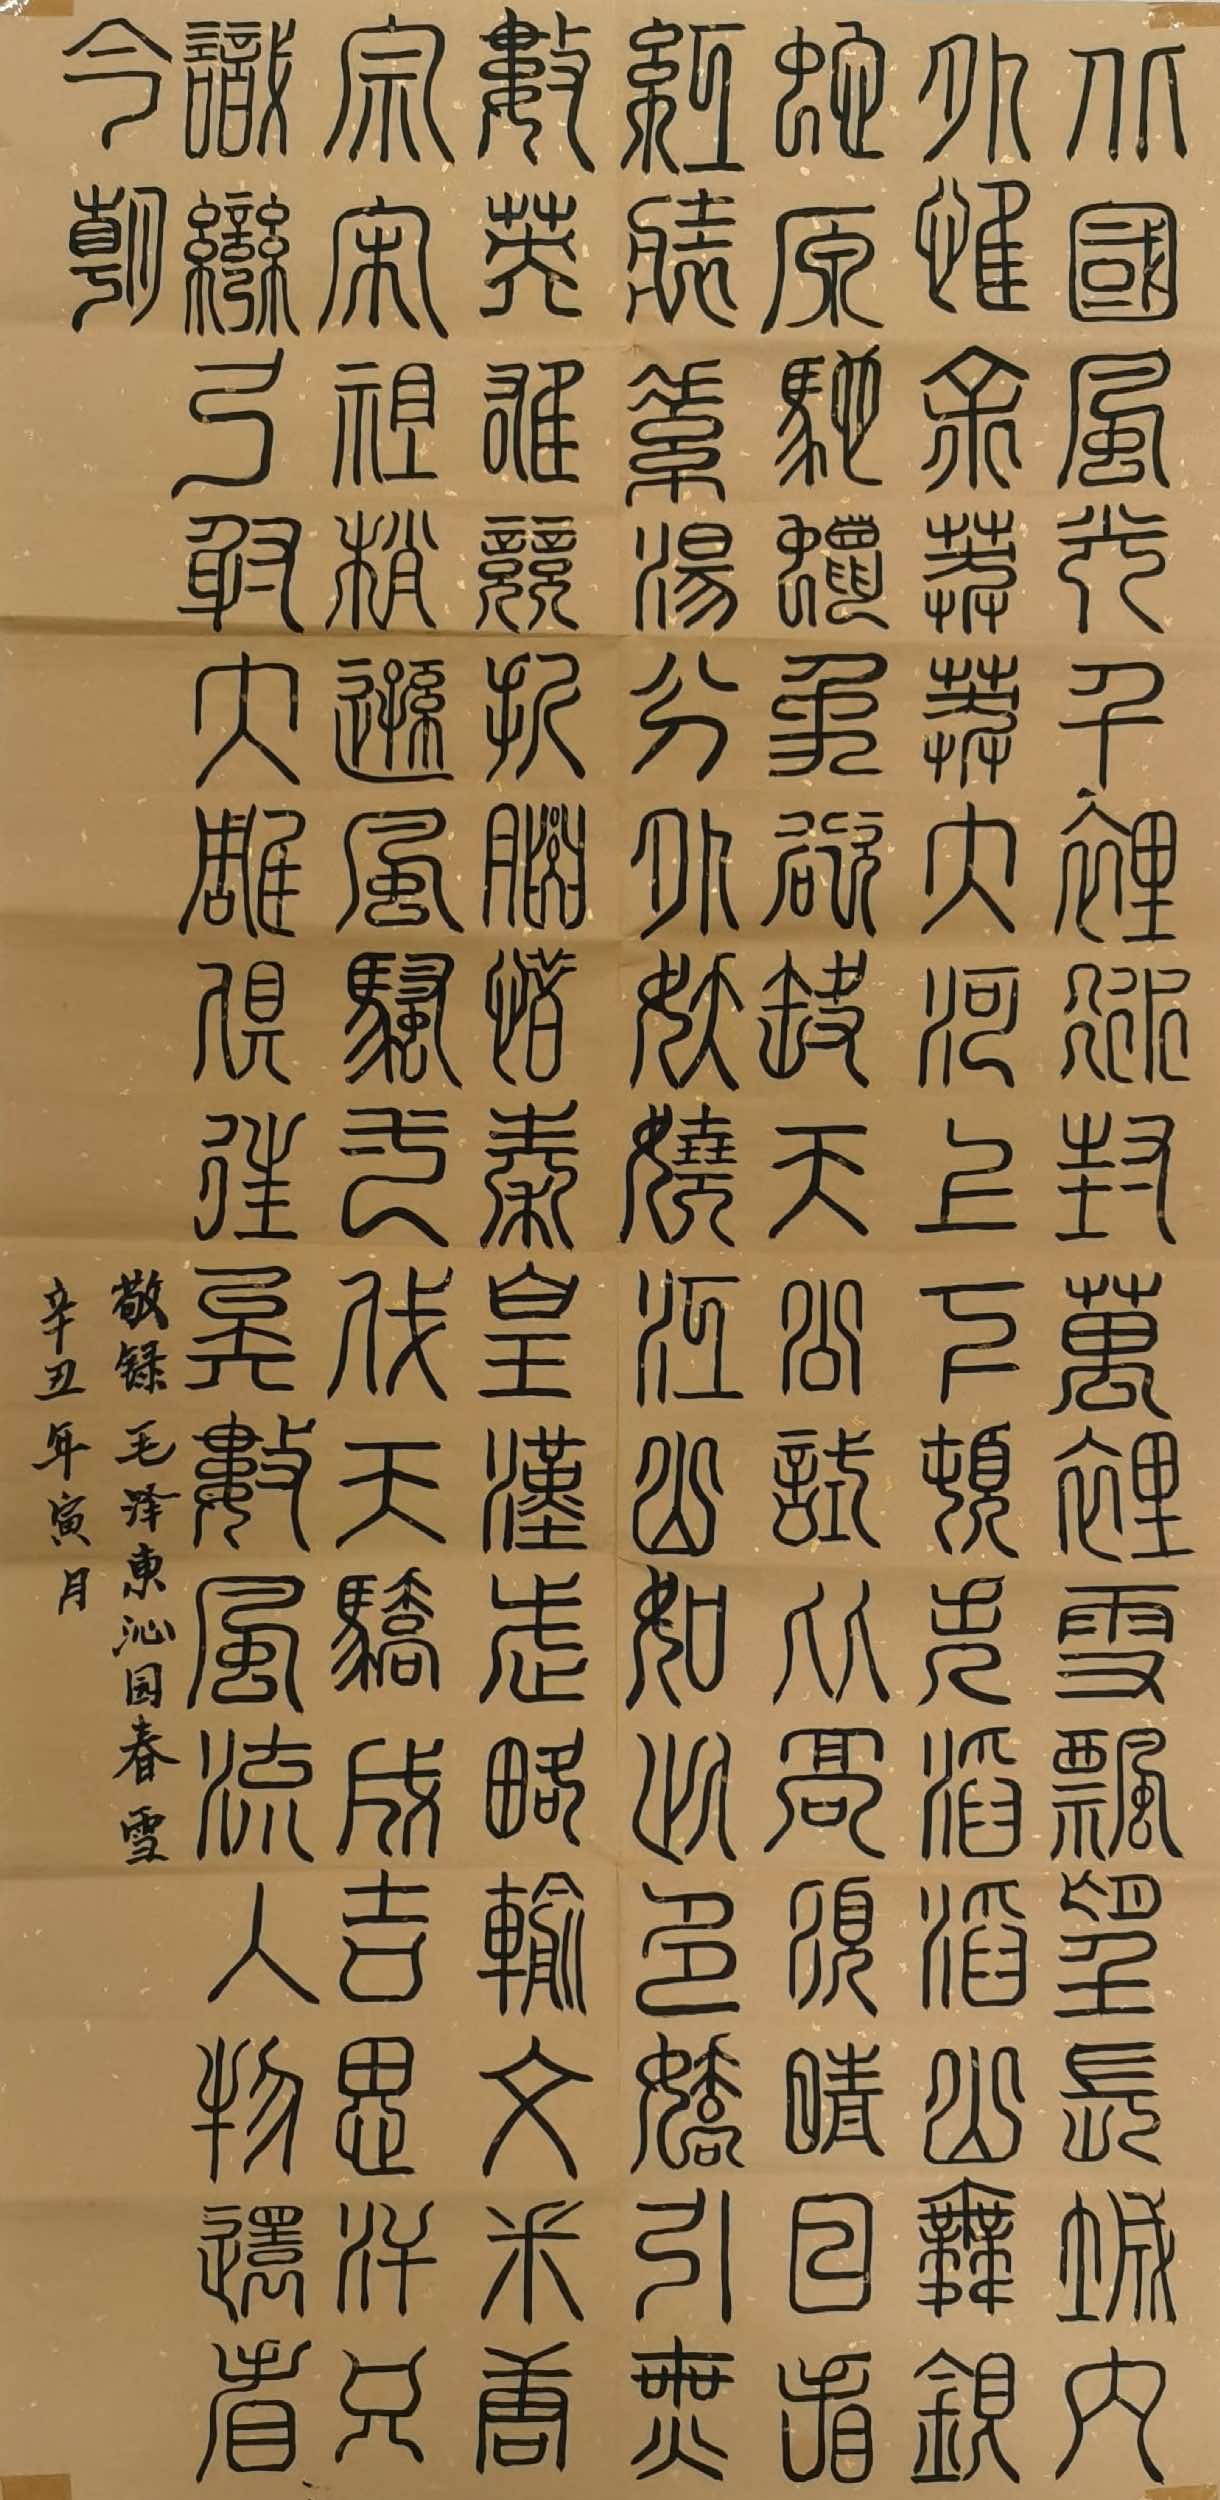 北國風光千裡冰封萬裡雪飄望長城內
外惟余莽莽大河上下頓失滔滔山舞銀
蛇原馳蠟象欲天公試比高須晴日看
紅裝湯分外妖嬈江山如此多嬌引無
數英雄競折腰惜秦皇漢武略輸文采唐
宗宋祖稍遜風騷弌代天驕成吉思汗只
識彎弓射大雕俱往矣數風流人物還看
今朝
敬録毛泽東沁园春雪
辛丑年寅月